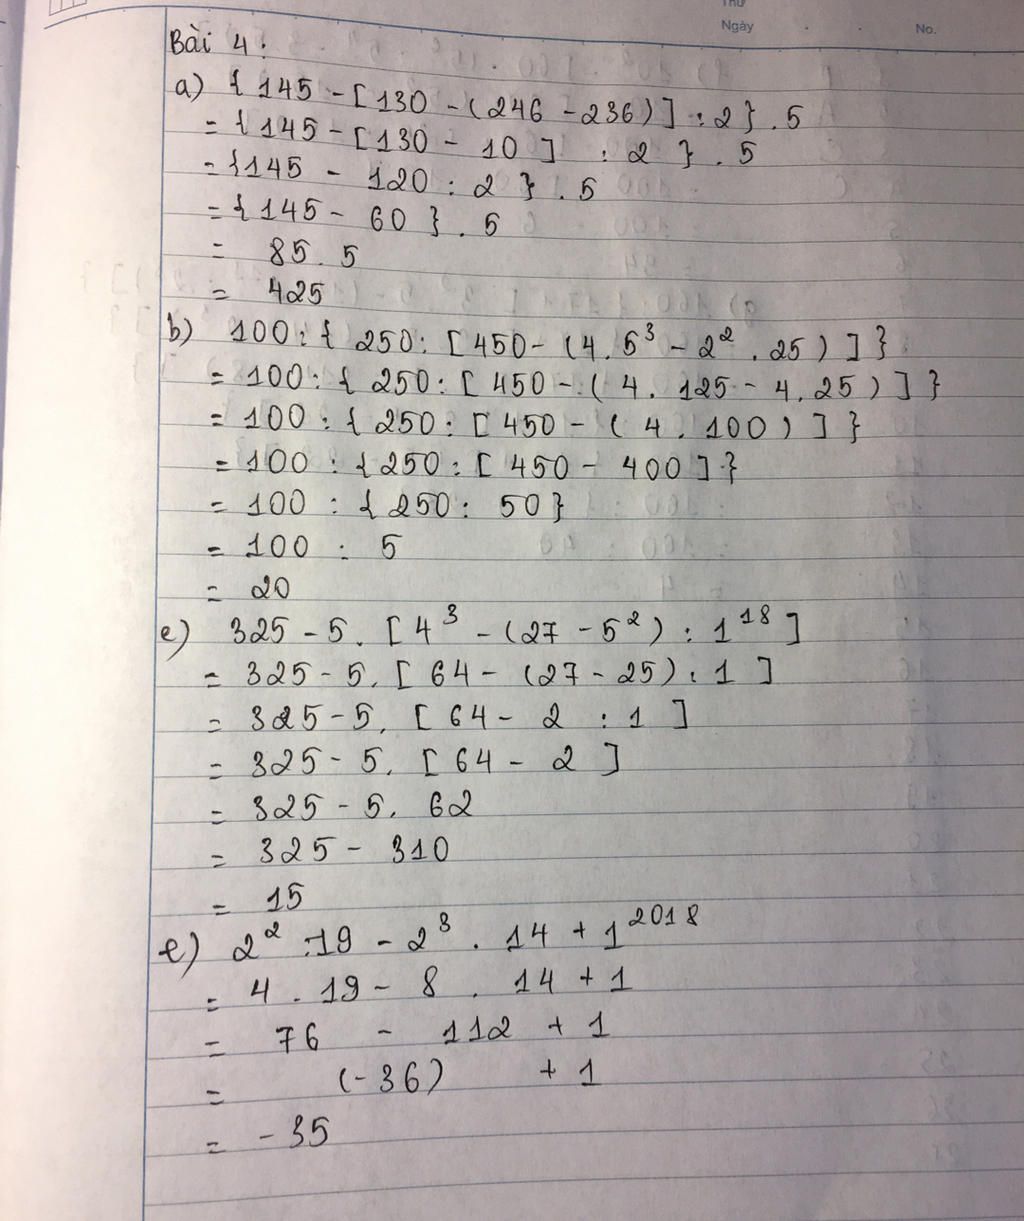 Thứ
Ngày . . No.
Bài 4:
a) { 145 - [130 - (246 - 236)] : 2 } . 5
= { 145 - [130 - 10 ] : 2 } . 5
= {145 - 120 : 2 } . 5
= { 145 - 60 } . 5
= 85 . 5
= 425
b) 100 : { 250 : [ 450 - (4 . 5³ - 2² . 25 ) ] }
= 100 : { 250 : [ 450 - ( 4 . 125 - 4 . 25 ) ] }
= 100 : { 250 : [ 450 - ( 4 . 100 ) ] }
= 100 : { 250 : [ 450 - 400 ] }
= 100 : { 250 : 50 }
= 100 : 5
= 20
e) 325 - 5 . [ 4³ - (27 - 5²) : 1¹⁸ ]
= 325 - 5 . [ 64 - (27 - 25) : 1 ]
= 325 - 5 . [ 64 - 2 : 1 ]
= 325 - 5 . [ 64 - 2 ]
= 325 - 5 . 62
= 325 - 310
= 15
2² . 19 - 2³ . 14 + 1²⁰¹⁸
= 4 . 19 - 8 . 14 + 1
= 76 - 112 + 1
= (-36) + 1
= -35